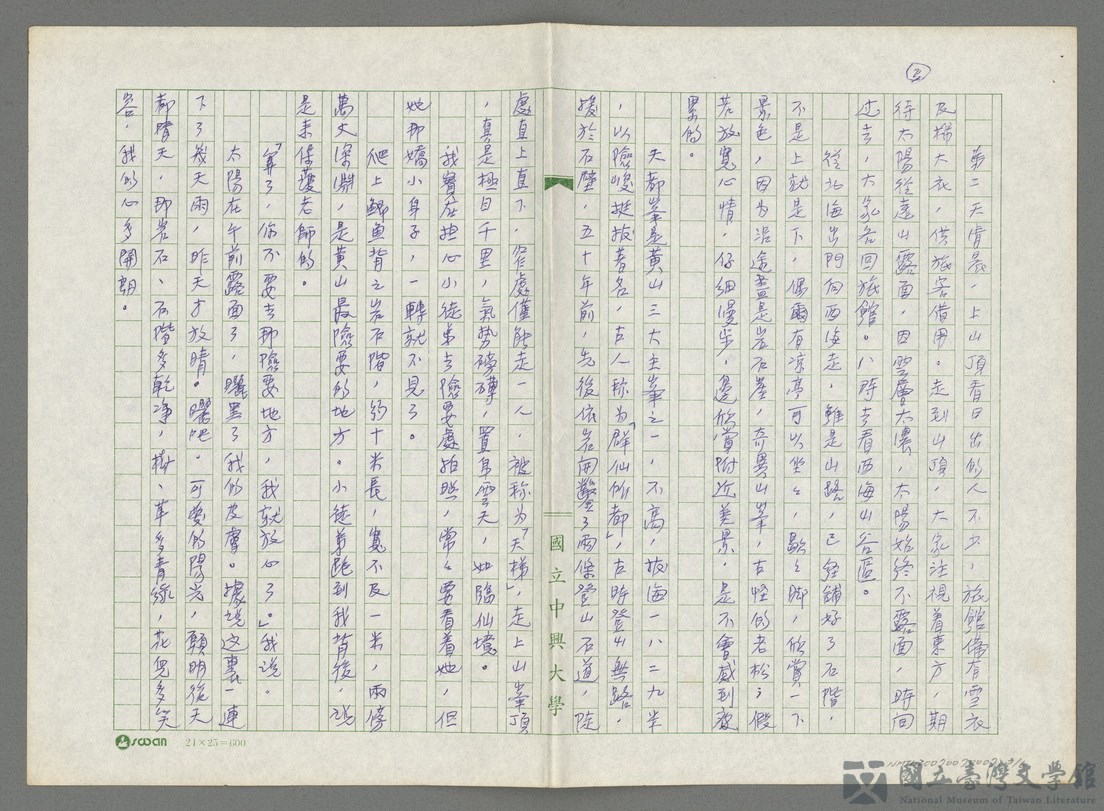 ③
第二天凌晨，上山頂看日出的人不少，旅館備有雪衣
及棉大衣，供旅客借用。走到山頂，大家注視着東方，期
待太陽從遠山露面，因雲層太濃，太陽始終不露面，時间
过去，大家各回旅館。八時去看西海山谷區。
從北海出門向西海走，雖是山路，已经鋪好了石階，
不是上就是下，偶爾有凉亭可以坐坐，歇歇脚，欣賞一下
景色，因为沿途盡是岩石崖，奇異山峯，古怪的老松；假
若放寬心情，仔細慢步，邊欣賞附近美景，是不會感到疲
累的。
天都峯是黄山三大主峯之一，不高，拔海一八二九米
，以險峻挺拔著名，古人称为「群仙所都」，古時登山無路，
援於石壁，五十年前，先後依岩间鑿了兩條登山石道，陡
處直上直下，窄處僅能走一人，被称为「天梯」，走上山峯頂
，真是極目千里，氣势磅礡，置身雲天，如臨仙境。
我實在担心小徒弟去險要處拍照，常々要看着她，但
她那嬌小身子，一轉就不見了。
爬上鯽魚背之岩石階，約十米長，寬不及一米，兩傍
萬丈深淵，是黄山最險要的地方。小徒弟跑到我背後，説
是来保護老師的。
「算了，你不要去那險要地方，我就放心了。」我说。
太陽在午前露面了，曬黑了我的皮膚。據說这裏一連
下了幾天雨，昨天才放晴。曬吧。可愛的陽光，願明後天
都晴天，那岩石、石階多乾净，樹、草多青綠，花兒多笑
容，我的心多開朗。
國立中興大學
swan 24×25=600
國立臺灣文學館
National Museum of Taiwan Literature